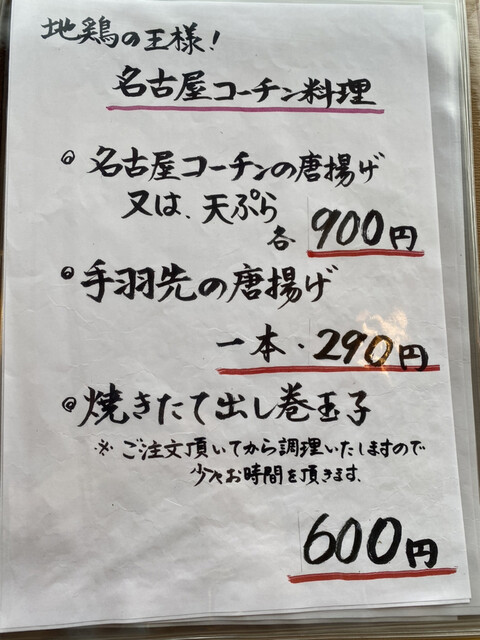 地鶏の王様!
名古屋コーチン料理
。名古屋コーチンの唐揚げ
又は、天ぷら
各 900円
。手羽先の唐揚げ
一本・290円
。焼きたて出し巻玉子
※ ご注文頂いてから調理いたしますので
少々お時間を頂きます。
600円